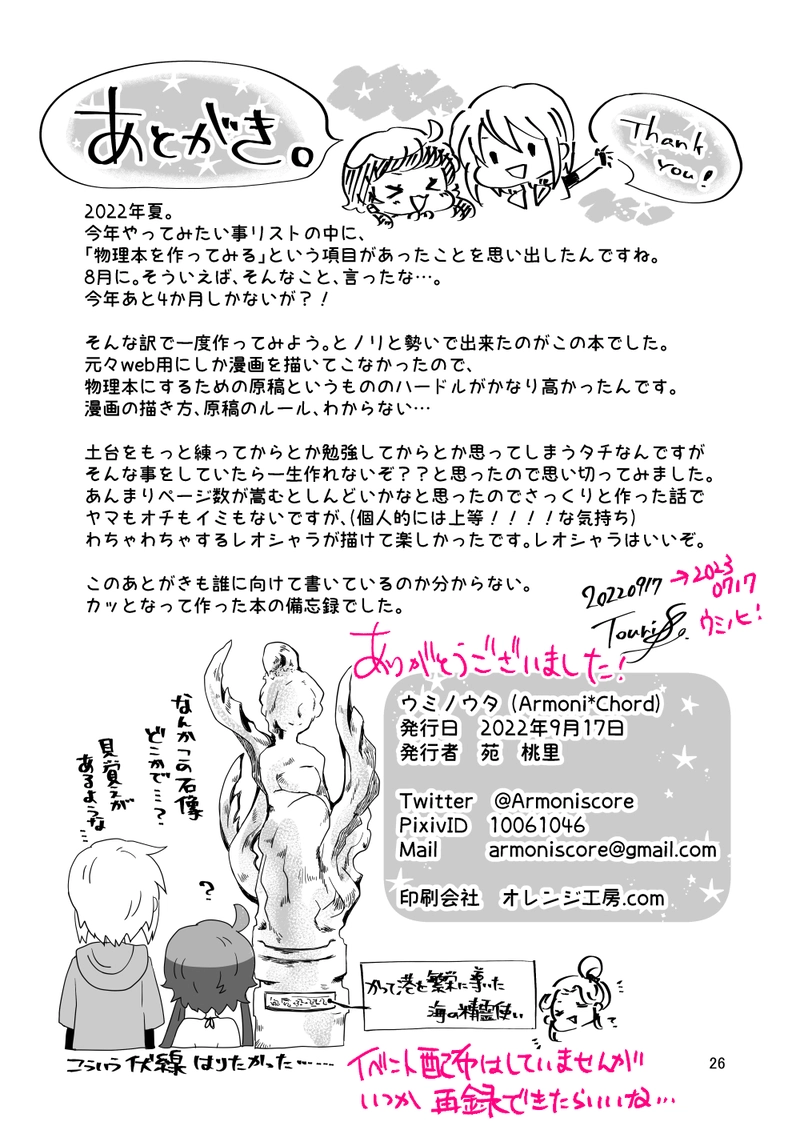 あとがき。
Thank you!
2022年夏。
今年やってみたい事リストの中に、
「物理本を作ってみる」という項目があったことを思い出したんですね。
8月に。そういえば、そんなこと、言ったな…。
今年あと4か月しかないが？！
そんな訳で一度作ってみよう。とノリと勢いで出来たのがこの本でした。
元々web用にしか漫画を描いてこなかったので、
物理本にするための原稿というもののハードルがかなり高かったんです。
漫画の描き方、原稿のルール、わからない…
土台をもっと練ってからとか勉強してからとか思ってしまうタチなんですが
そんな事をしていたら一生作れないぞ？？と思ったので思い切ってみました。
あんまりページ数が嵩むとしんどいかなと思ったのでさっくりと作った話で
ヤマもオチもイミもないですが、(個人的には上等！！！！な気持ち)
わちゃわちゃするレオシャラが描けて楽しかったです。レオシャラはいいぞ。
このあとがきも誰に向けて書いているのか分からない。
カッとなって作った本の備忘録でした。
20220917
→2023
0717
ウミノヒ!
ありがとうございました!
ウミノウタ (Armoni*Chord)
発行日 2022年9月17日
発行者 苑 桃里
Twitter @Armoniscore
PixivID 10061046
Mail armoniscore@gmail.com
印刷会社 オレンジ工房.com
なんかこの石像
どこかで…?
見覚えが
あるような
?
かつて港を繁栄に導いた
海の精霊使い
こういう伏線はりたかった……
イベント配布はしていませんが
いつか再録できたらいいな…
26